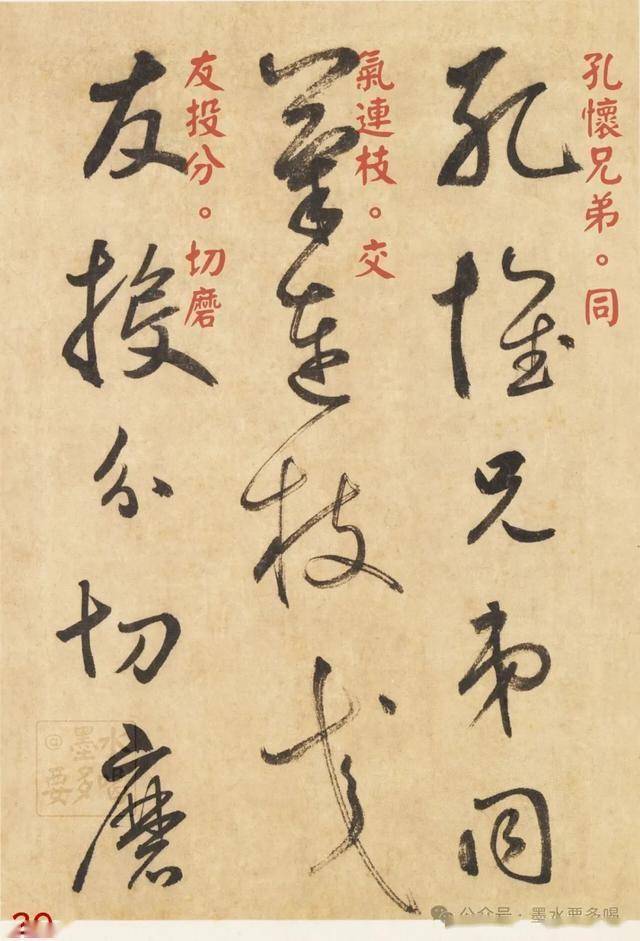 孔懷兄弟同
孔懷兄弟。同
氣連枝交
氣連枝。交
友投分切磨
友投分。切磨
@墨水要多喝
公众号·墨水要多喝